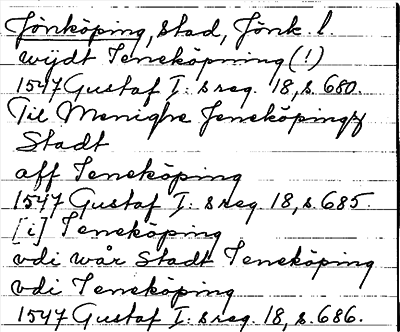 Jönköping, stad, Jönk. l.
wijdt Jeneköpning (!)
1547 Gustaf I: s reg. 18, s. 680.
Til Menighe Jeneköpings
Stadt
aff Jeneköping
1547 Gustaf I: s reg. 18, s. 685.
[i] Jeneköping
vdi wår Stadt Jeneköping
vdi Jeneköping
1547 Gustaf I: s reg. 18, s. 686.